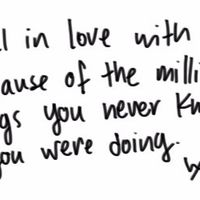 l in love with
ause of the milli
gs you never Kn
you were doing.